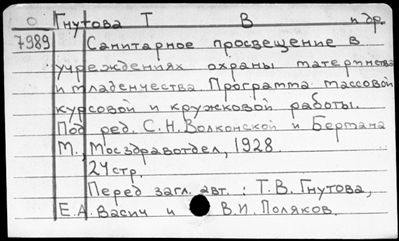 Гнутова Т В и др.
7989 Санитарное просвещение в
учреждениях охраны материнства
и младенчества. Программа массовой
курсовой и кружковой работы.
Под ред. С.Н. Волконской и Бермана
М., Мосздравотдел, 1928.
24 стр.
Перед загл. авт. : Т.В. Гнутова,
Е.А. Васич и В.И. Поляков.